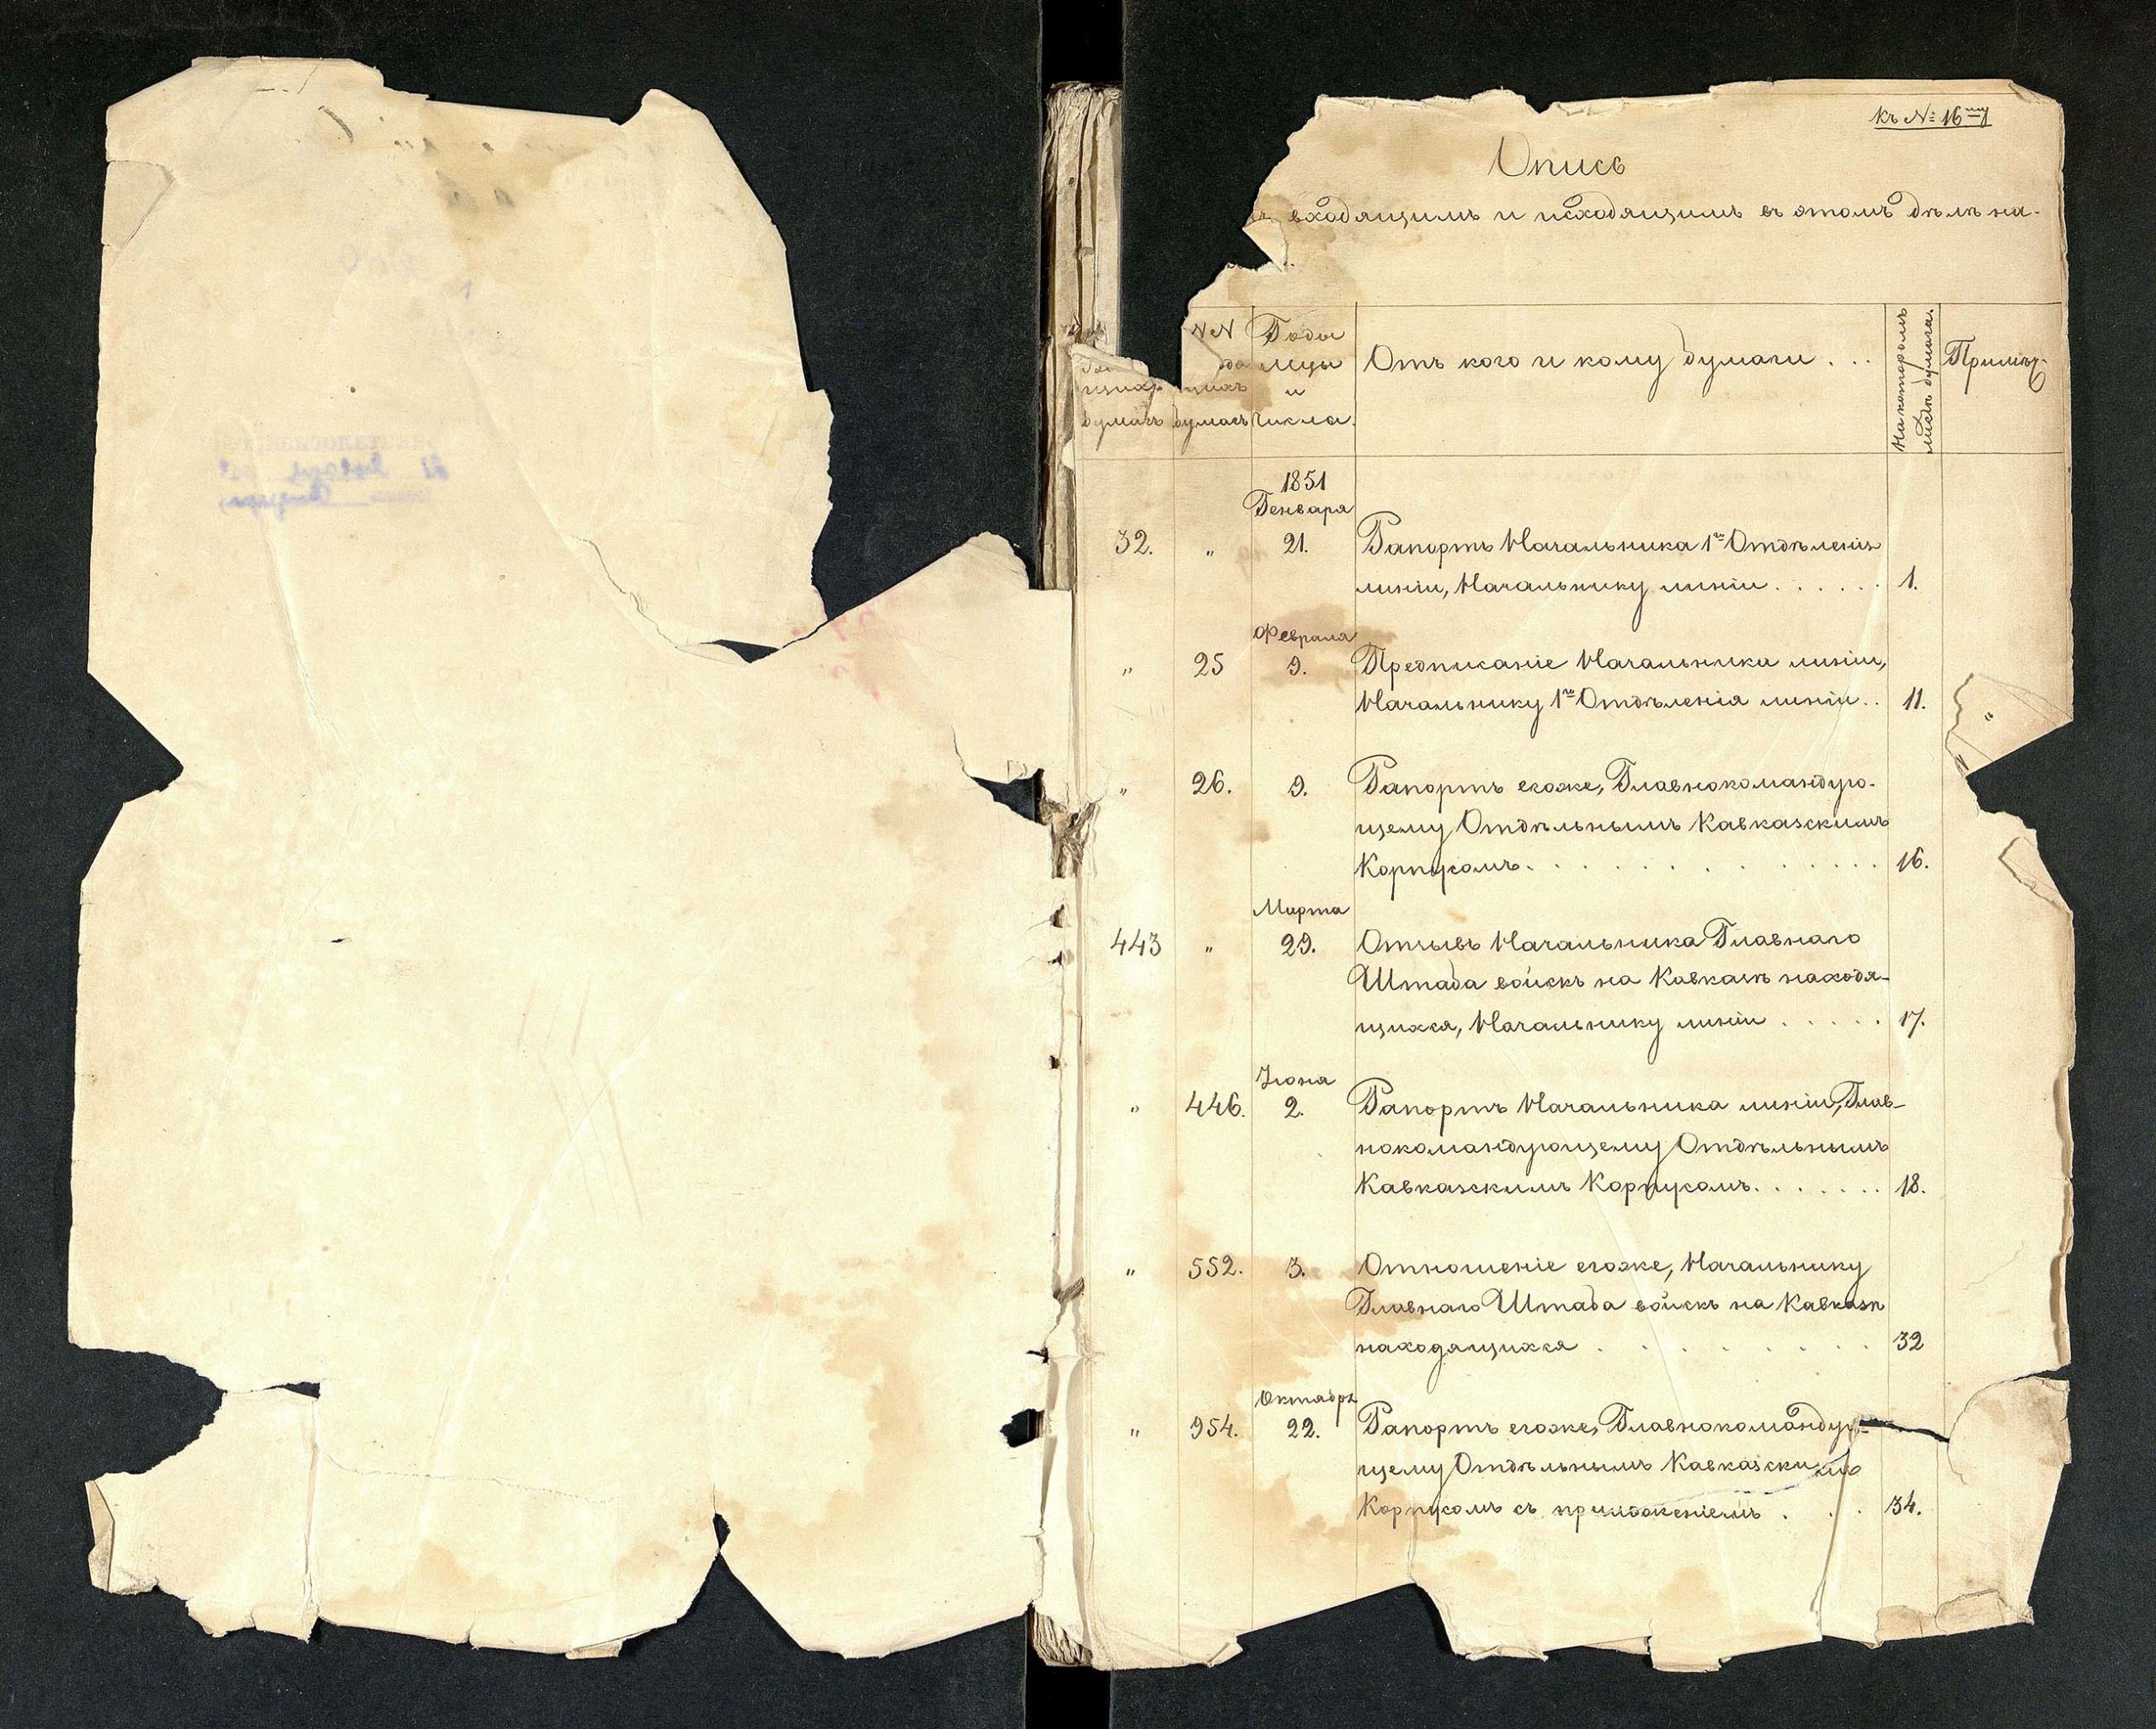 къ № 16му
Опись
входящимъ и исходящимъ въ этомъ дѣлѣ на-
NN
Годы
мцы
и
числа.
щихъ
щихъ
бумагъ
бумагъ
Отъ кого и кому бумаги . . .
На которомъ
листѣ бумага.
Примѣч.
1851
Генваря
32. „ 21. Рапортъ Начальника 1го Отдѣленія
линіи, Начальнику линіи . . . . . . 1.
Февраля
„ 25 9. Предписаніе Начальника линіи,
Начальнику 1го Отдѣленія линіи . . 11. „
„ 26. 9. Рапортъ егоже, Главнокомандую-
щему Отдѣльнымъ Кавказскимъ
Корпусомъ . . . . . . . . . 16.
Марта
443 „ 29. Отзывъ Начальника Главнаго
Штаба войскъ на Кавказѣ находя-
щихся, Начальнику линіи . . . . . 17.
Іюня
„ 446. 2. Рапортъ Начальника линіи, Глав-
нокомандующему Отдѣльнымъ
Кавказскимъ Корпусомъ . . . . . . . 18.
„ 552. 3. Отношеніе егоже, Начальнику
Главнаго Штаба войскъ на Кавказѣ
находящихся . . . . . . . . 32
Октября
„ 954. 22. Рапортъ егоже, Главнокомандую-
щему Отдѣльнымъ Кавказскимъ
Корпусомъ съ приложеніемъ . . . 34.